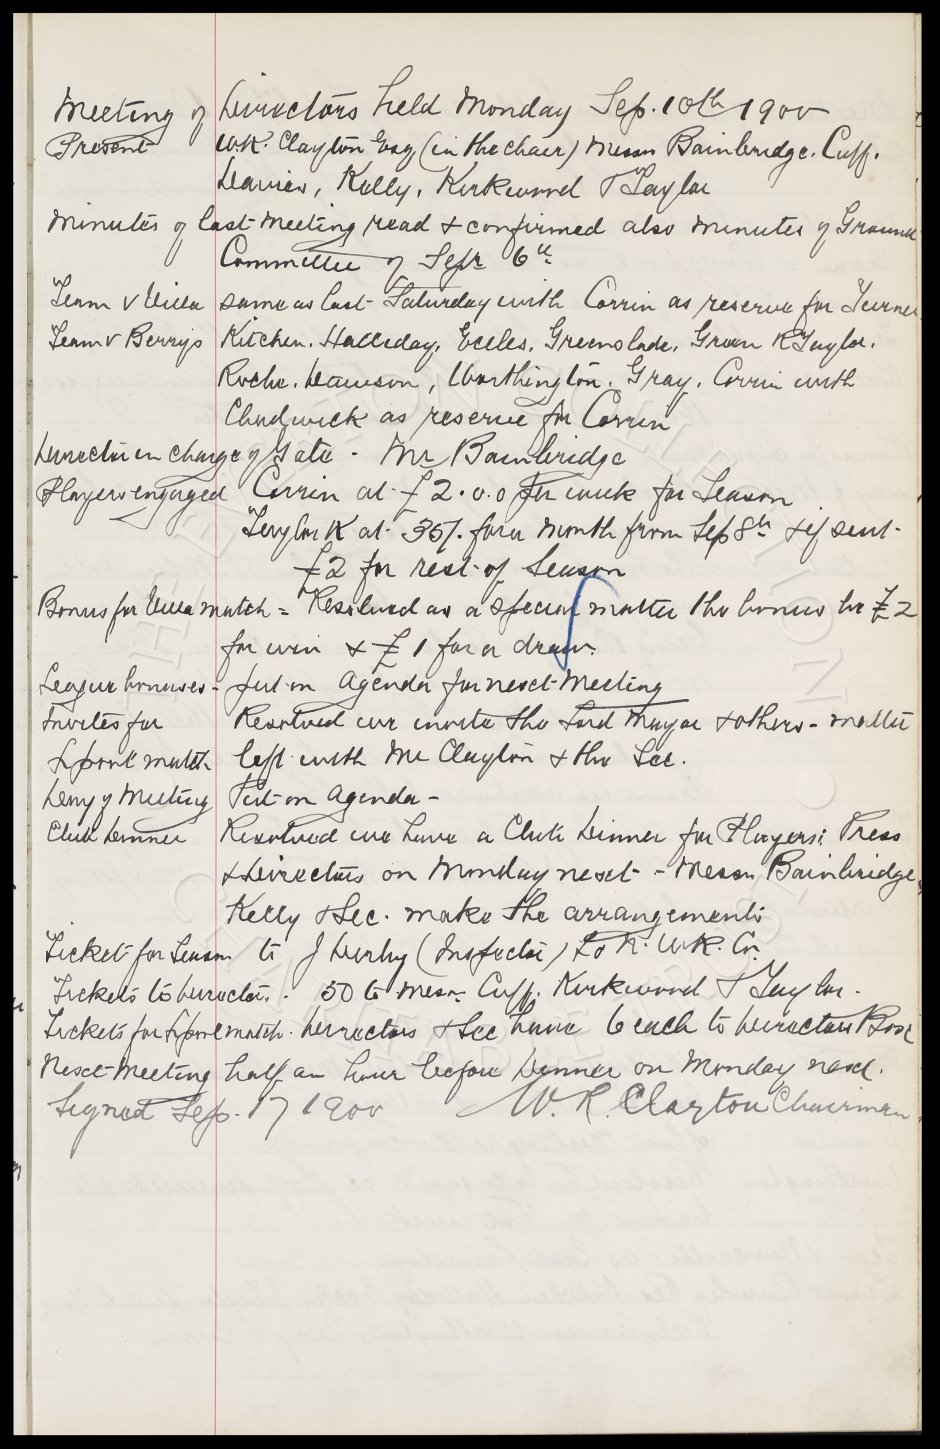 Meeting of Directors held Monday Sep. 10th 1900
Present W.R. Clayton Esq (in the chair) Messrs Bainbridge. Cuff.
Davies, Kelly, Kirkwood & Taylor
Minutes of last meeting read & confirmed also minutes of Ground
Committee of Sept 6th
Team v Villa same as last Saturday with Corrin as reserve for Turner
Team v Berrys Kitchen. Halliday, Eccles, Greenslade, Green R Taylor.
Roche. Dawson, Worthington. Gray. Corrin with
Chadwick as reserve for Corrin
Director in charge of Gate - Mr Bainbridge
Players engaged Corrin at £2.0.0 per week for Season
Taylor R at 35/- for a month from Sep 8th & if sent
£2 for rest of Season
Bonus for Villa match = Resolved as a special matter the bonus be £2
for win & £1 for a draw.
League bonuses - put on Agenda for next meeting
Invites for Resolved we invite the Lord Mayor & others - matter
L'pool match left with Mr Clayton & the Sec.
Day of Meeting Put on Agenda -
Club Dinner Resolved we have a Club Dinner for Players: Press
& Directors on Monday next - Messrs Bainbridge
Kelly & Sec. make the arrangements
Ticket for Season to J Derby (Inspector) L & N. W R. Co.
Tickets to Directors. 50 to Messrs. Cuff. Kirkwood & Taylor.
Tickets for L'pool match. Directors & Sec have 6 each to Directors Box
Next Meeting half an hour before Dinner on Monday next.
Signed Sep. 17 1900 W. R. Clayton Chairman